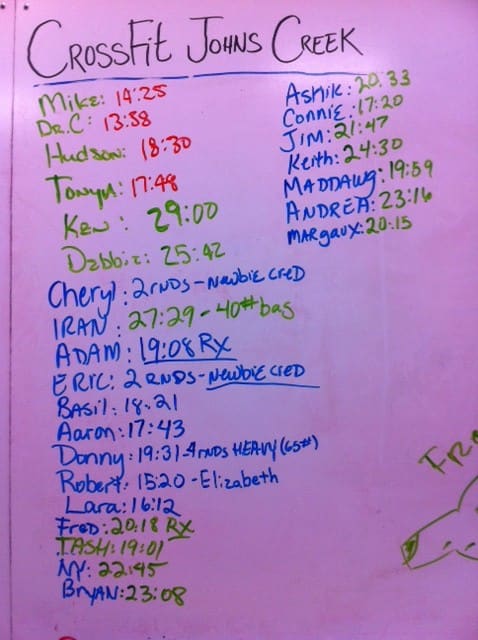 CROSSFIT JOHNS CREEK
MIKE: 14:25
DR.C: 13:58
HUDSON: 18:30
TONYA: 17:48
KEN: 29:00
DEBBIE: 25:42
Cheryl: 2 RNDS - NEWBIE CRED
IRAN: 27:29 - 40# bag
ADAM: 19:08 RX
ERIC: 2 RNDS - NEWBIE CRED
BASIL: 18:21
Aaron: 17:43
Donny: 19:31 - 4 RNDS HEAVY (65#)
Robert: 15:20 - Elizabeth
Lara: 16:12
FRED: 20:18 RX
TASH: 19:01
NY: 22:45
BRYAN: 23:08
ASHIK: 20:33
CONNIE: 17:20
JIM: 21:47
Keith: 24:30
MADDAWG: 19:59
ANDREA: 23:16
MARGAUX: 20:15